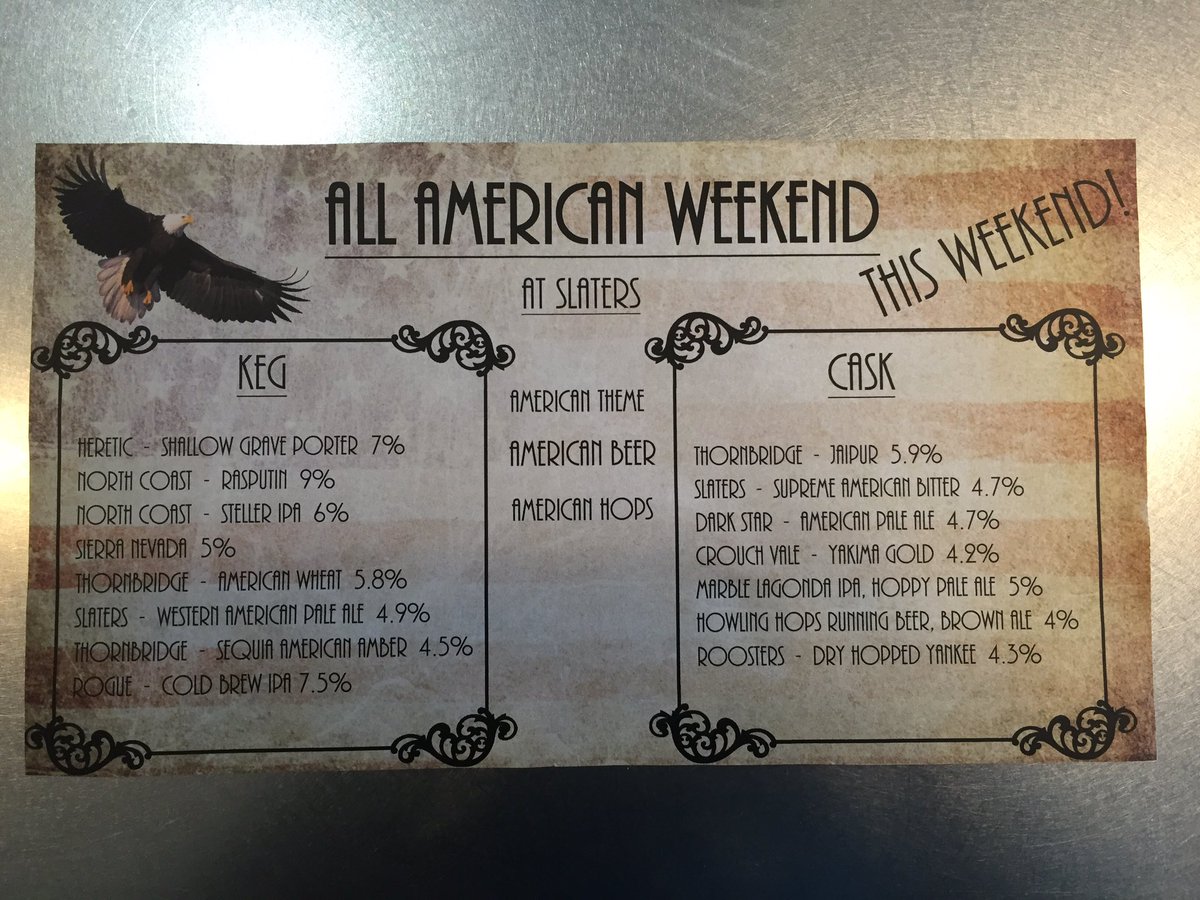 ALL AMERICAN WEEKEND
THIS WEEKEND!
AT SLATERS
KEG
HERETIC - SHALLOW GRAVE PORTER 7%
NORTH COAST - RASPUTIN 9%
NORTH COAST - STELLER IPA 6%
SIERRA NEVADA 5%
THORNBRIDGE - AMERICAN WHEAT 5.8%
SLATERS - WESTERN AMERICAN PALE ALE 4.9%
THORNBRIDGE - SEQUIA AMERICAN AMBER 4.5%
ROGUE - COLD BREW IPA 7.5%
AMERICAN THEME
AMERICAN BEER
AMERICAN HOPS
CASK
THORNBRIDGE - JAIPUR 5.9%
SLATERS - SUPREME AMERICAN BITTER 4.7%
DARK STAR - AMERICAN PALE ALE 4.7%
CROUCH VALE - YAKIMA GOLD 4.2%
MARBLE LAGONDA IPA, HOPPY PALE ALE 5%
HOWLING HOPS RUNNING BEER, BROWN ALE 4%
ROOSTERS - DRY HOPPED YANKEE 4.3%